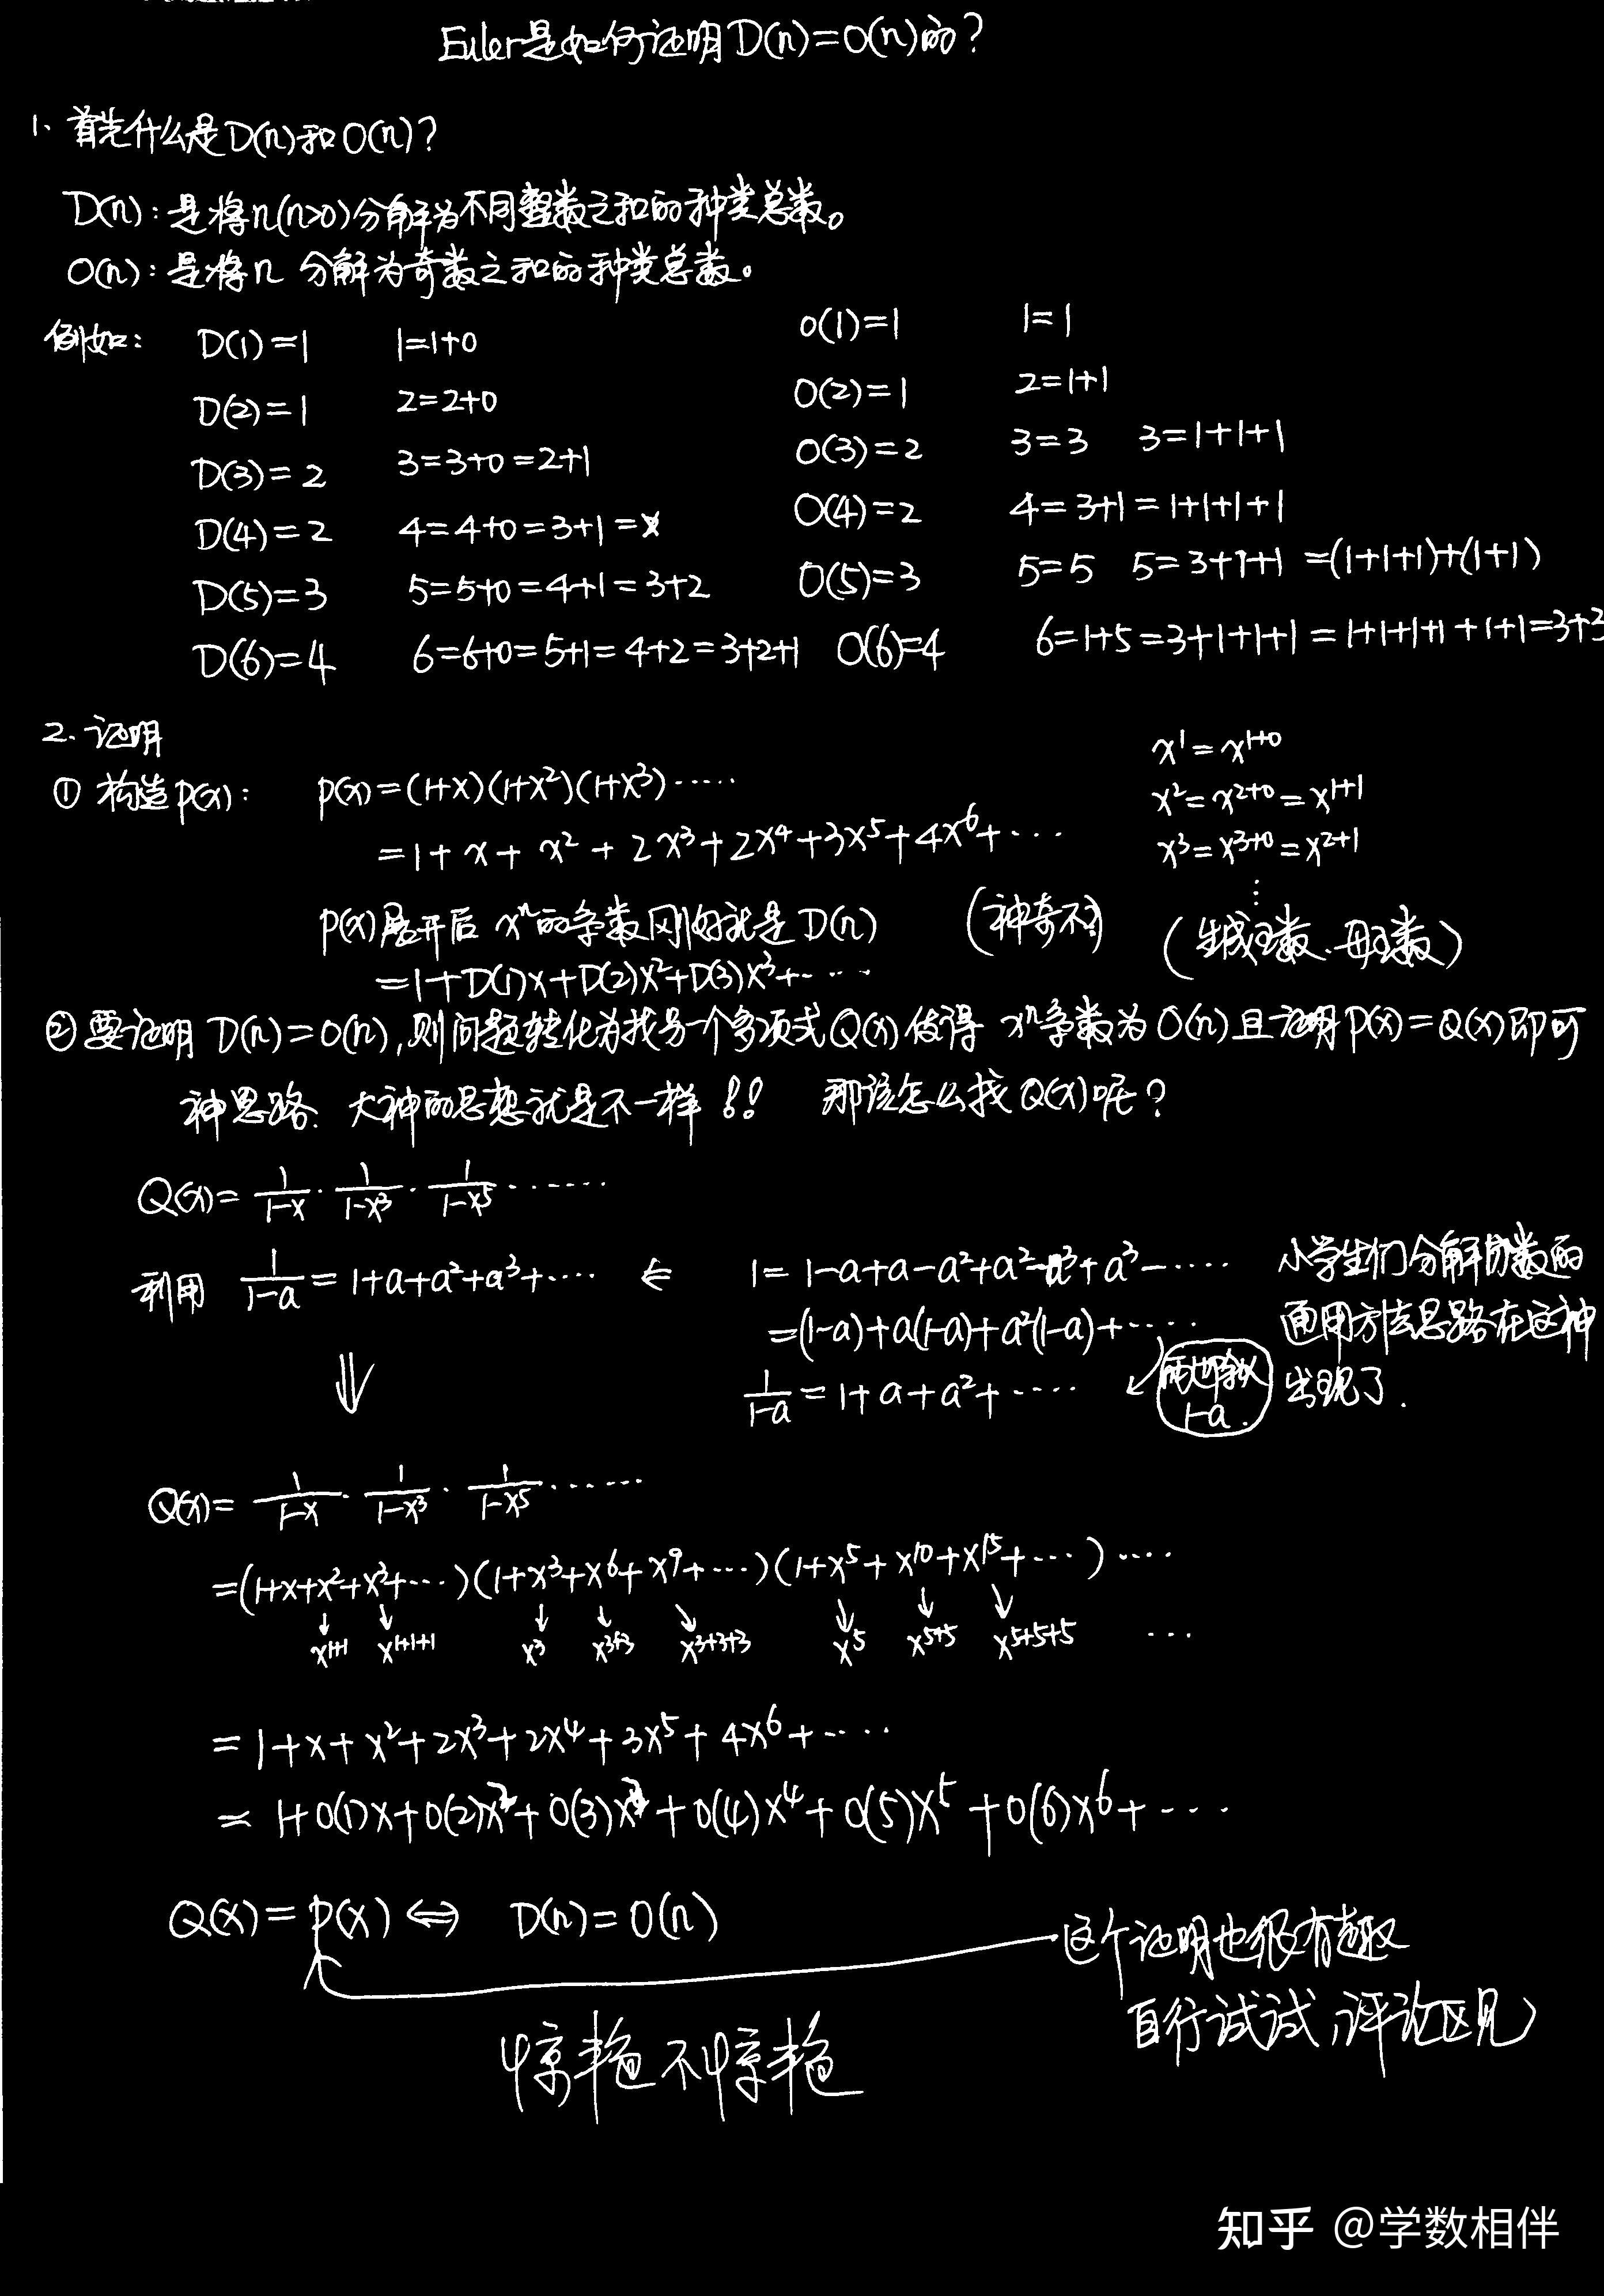 Euler是如何证明D(n)=O(n)的?
1、首先什么是D(n)和O(n)?
D(n):是将n(n>0)分解为不同整数之和的种类总数。
O(n):是将n 分解为奇数之和的种类总数。
例如: D(1)=1 1=1+0 O(1)=1 1=1
D(2)=1 2=2+0 O(2)=1 2=1+1
D(3)=2 3=3+0=2+1 O(3)=2 3=3 3=1+1+1
D(4)=2 4=4+0=3+1=x O(4)=2 4=3+1=1+1+1+1
D(5)=3 5=5+0=4+1=3+2 O(5)=3 5=5 5=3+1+1 =(1+1+1)+(1+1)
D(6)=4 6=6+0=5+1=4+2=3+2+1 O(6)=4 6=1+5=3+1+1+1=1+1+1+1+1+1=3+3
2、证明
① 构造p(x): p(x)=(1+x)(1+x²)(1+x³)·····
=1+x+x²+2x³+2x⁴+3x⁵+4x⁶+···
x¹=x¹⁺⁰
x²=x²⁺⁰=x¹⁺¹
x³=x³⁺⁰=x²⁺¹
⋮
p(x)展开后 xⁿ的系数刚好就是D(n) (神奇不) (生成函数、母函数)
=1+D(1)x+D(2)x²+D(3)x³+·····
② 要证明 D(n)=O(n),则问题转化为找另一个多项式Q(x)使得 xⁿ系数为O(n)且证明p(x)=Q(x)即可
神思路、大神的思想就是不一样!! 那该怎么找Q(x)呢?
Q(x)=1/(1-x)·1/(1-x³)·1/(1-x⁵)·······
利用 1/(1-a)=1+a+a²+a³+···· ⇐
1=1-a+a-a²+a²-a³+a³-·····
=(1-a)+a(1-a)+a²(1-a)+·····
1/(1-a)=1+a+a²+·····
两边除以
1-a.
小学生们分解分数的
通用方法思路在这种
出现了.
⇓
Q(x)=1/(1-x)·1/(1-x³)·1/(1-x⁵)·······
=(1+x+x²+x³+···)(1+x³+x⁶+x⁹+···)(1+x⁵+x¹⁰+x¹⁵+···)····
↓ ↓ ↓ ↓ ↓ ↓ ↓ ↓
x¹⁺¹ x¹⁺¹⁺¹ x³ x³⁺³ x³⁺³⁺³ x⁵ x⁵⁺⁵ x⁵⁺⁵⁺⁵ ···
=1+x+x²+2x³+2x⁴+3x⁵+4x⁶+····
=1+O(1)x+O(2)x²+O(3)x³+O(4)x⁴+O(5)x⁵+O(6)x⁶+····
Q(x)=p(x)⇔ D(n)=O(n)
这个证明也很有趣
自行试试,评论区见
惊艳不惊艳
知乎 @学数相伴